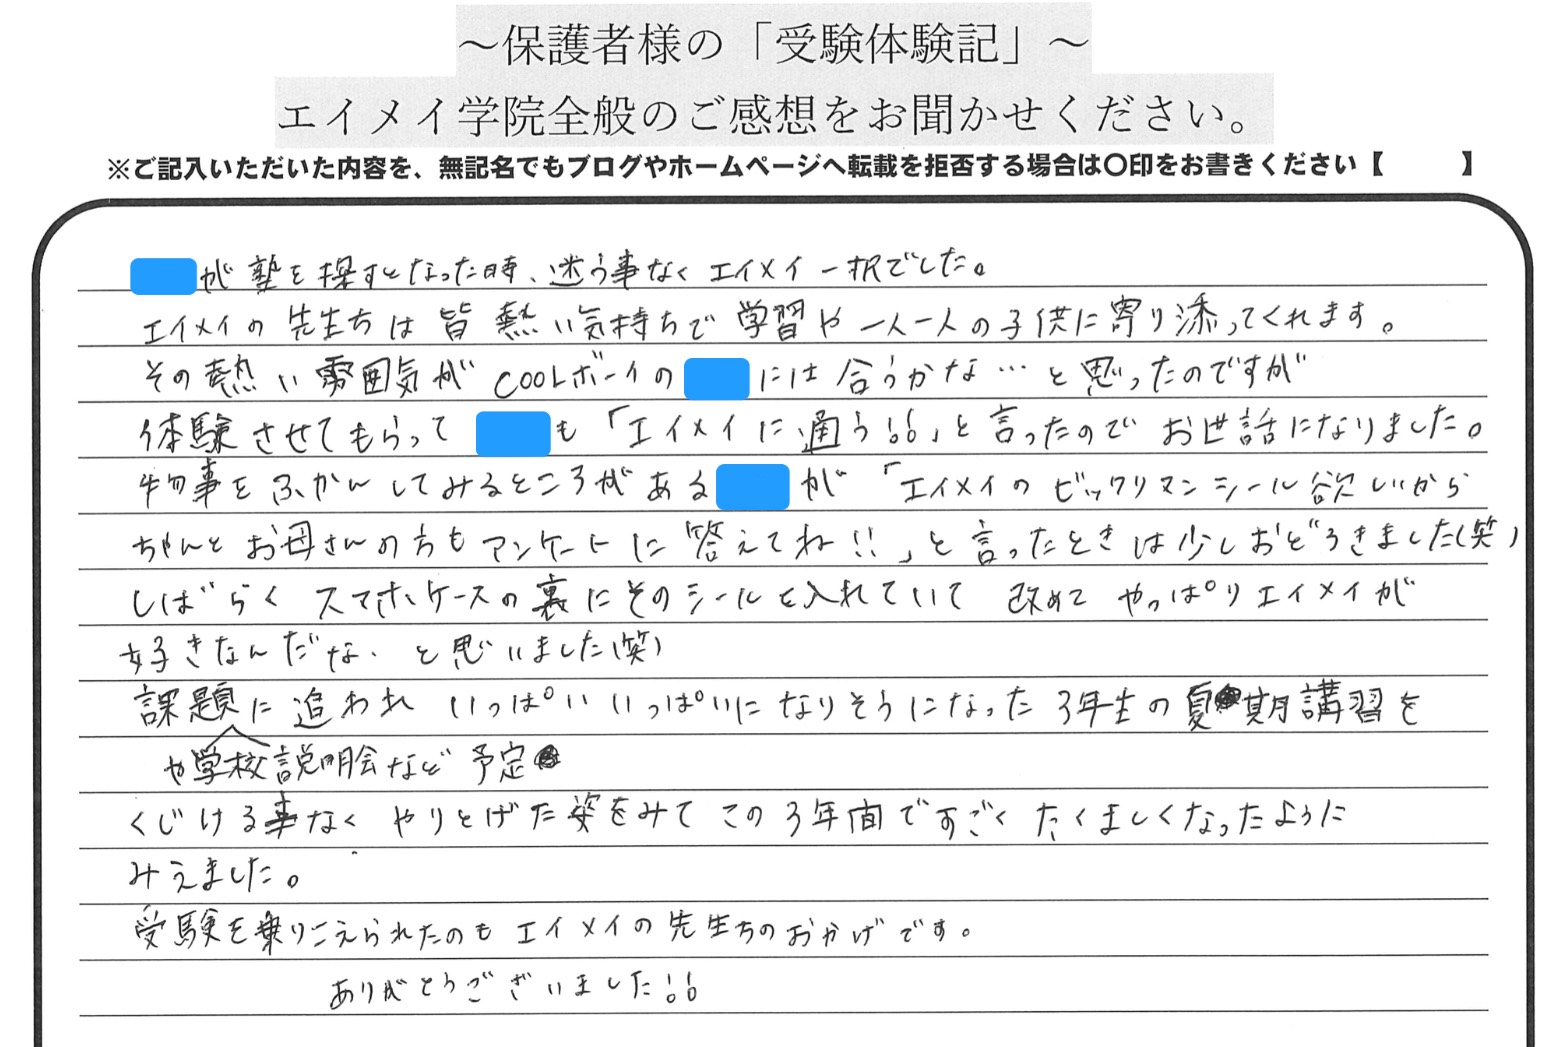 ～保護者様の「受験体験記」～
エイメイ学院全般のご感想をお聞かせください。
※ご記入いただいた内容を、無記名でもブログやホームページへ転載を拒否する場合は〇印をお書きください【　　　】
が塾を探すとなった時、迷う事なくエイメイ一択でした。
エイメイの先生たちは皆熱い気持ちで学習や一人一人の子供に寄り添ってくれます。
その熱い雰囲気がCOOLボーイの　には合うかな…と思ったのですが
体験させてもらって　も「エイメイに通う!!」と言ったのでお世話になりました。
物事をふかんしてみるところがある　が「エイメイのビックリマンシール欲しいから
ちゃんとお母さんの方もアンケートに答えてね!!」と言ったときは少しおどろきました(笑)
しばらくスマホケースの裏にそのシールを入れていて改めてやっぱりエイメイが
好きなんだな、と思いました(笑)
課題に追われいっぱいいっぱいになりそうになった3年生の夏期講習を
や学校説明会など予定
くじける事なくやりとげた姿をみてこの3年間ですごくたくましくなったように
みえました。
受験を乗りこえられたのもエイメイの先生たちのおかげです。
ありがとうございました!!